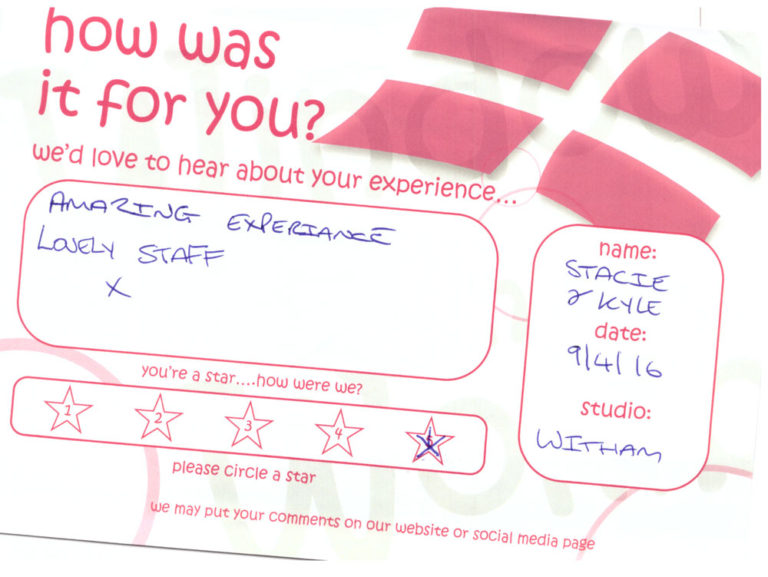 how was
it for you?
we'd love to hear about your experience...
AMAZING EXPERIANCE
LOVELY STAFF
X
name:
STACIE
& KYLE
date:
9/4/16
studio:
WITHAM
you're a star....how were we?
1 2 3 4 5
please circle a star
we may put your comments on our website or social media page